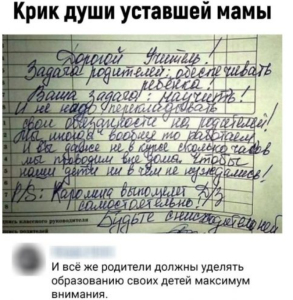 Крик души уставшей мамы
Дорогой Учитель!
Задача родителей: обеспечивать
ребёнка!
Ваша задача! Научить!
И не надо перекладывать
свои обязанности на родителей!
Мы, многие вообще то работаем!
И вы даже не в курсе сколько часов
мы проводим вне дома. Чтобы
наши дети ни в чем не нуждались!
P/S: Каролина выполняет ДЗ
самостоятельно!
Будьте снисходительней
И всё же родители должны уделять
образованию своих детей максимум
внимания.